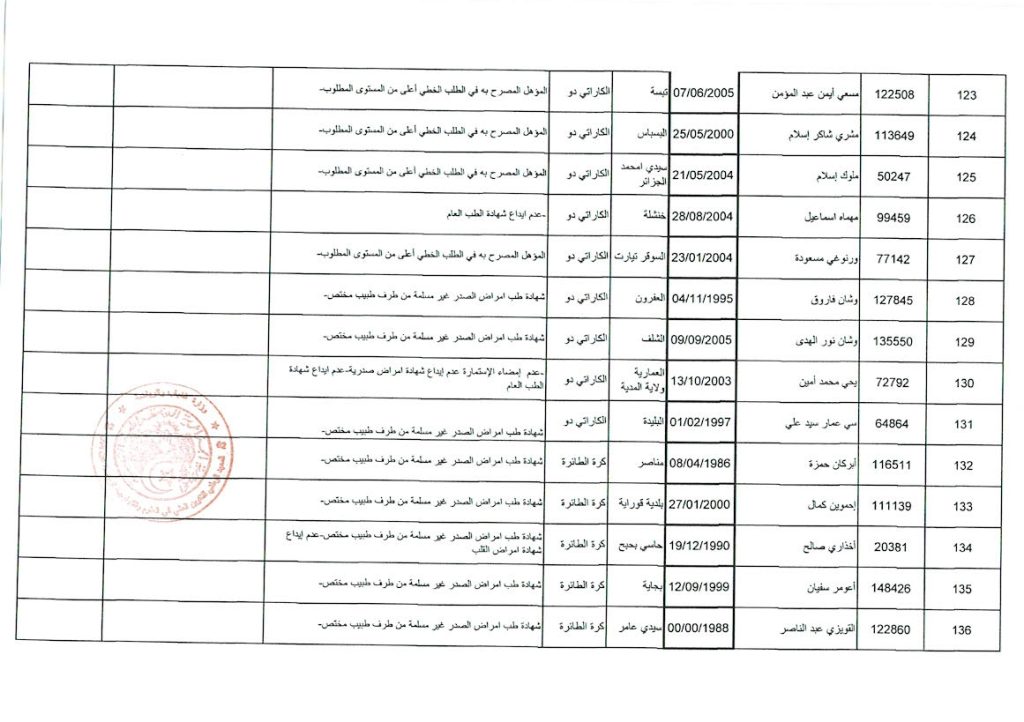 123 122508 مسعي أيمن عبد المؤمن 07/06/2005 تبسة الكاراتي دو المؤهل المصرح به في الطلب الخطي أعلى من المستوى المطلوب-
124 113649 مشري شاكر إسلام 25/05/2000 البسباس الكاراتي دو المؤهل المصرح به في الطلب الخطي أعلى من المستوى المطلوب-
125 50247 ملوك إسلام 21/05/2004 سيدي امحمد الجزائر الكاراتي دو المؤهل المصرح به في الطلب الخطي أعلى من المستوى المطلوب-
126 99459 مهماه اسماعيل 28/08/2004 خنشلة الكاراتي دو -عدم ايداع شهادة الطب العام
127 77142 ورنوغي مسعودة 23/01/2004 السوقر تيارت الكاراتي دو المؤهل المصرح به في الطلب الخطي أعلى من المستوى المطلوب-
128 127845 وشان فاروق 04/11/1995 العفرون الكاراتي دو شهادة طب امراض الصدر غير مسلمة من طرف طبيب مختص-
129 135550 وشان نور الهدى 09/09/2005 الشلف الكاراتي دو شهادة طب امراض الصدر غير مسلمة من طرف طبيب مختص-
130 72792 يحي محمد أمين 13/10/2003 العمارية ولاية المدية الكاراتي دو -عدم إمضاء الإستمارة عدم إيداع شهادة امراض صدرية-عدم ايداع شهادة
الطب العام
131 64864 سي عمار سيد علي 01/02/1997 البليدة الكاراتي دو شهادة طب امراض الصدر غير مسلمة من طرف طبيب مختص-
132 116511 أبركان حمزة 08/04/1986 مناصر كرة الطائرة شهادة طب امراض الصدر غير مسلمة من طرف طبيب مختص-
133 111139 إحموين كمال 27/01/2000 بلدية قوراية كرة الطائرة شهادة طب امراض الصدر غير مسلمة من طرف طبيب مختص-
134 20381 أخذاري صالح 19/12/1990 حاسي بحبح كرة الطائرة شهادة طب امراض الصدر غير مسلمة من طرف طبيب مختص-عدم إيداع
شهادة امراض القلب
135 148426 أعومر سفيان 12/09/1999 بجاية كرة الطائرة شهادة طب امراض الصدر غير مسلمة من طرف طبيب مختص-
136 122860 القويزي عبد الناصر 00/00/1988 سيدي عامر كرة الطائرة شهادة طب امراض الصدر غير مسلمة من طرف طبيب مختص-